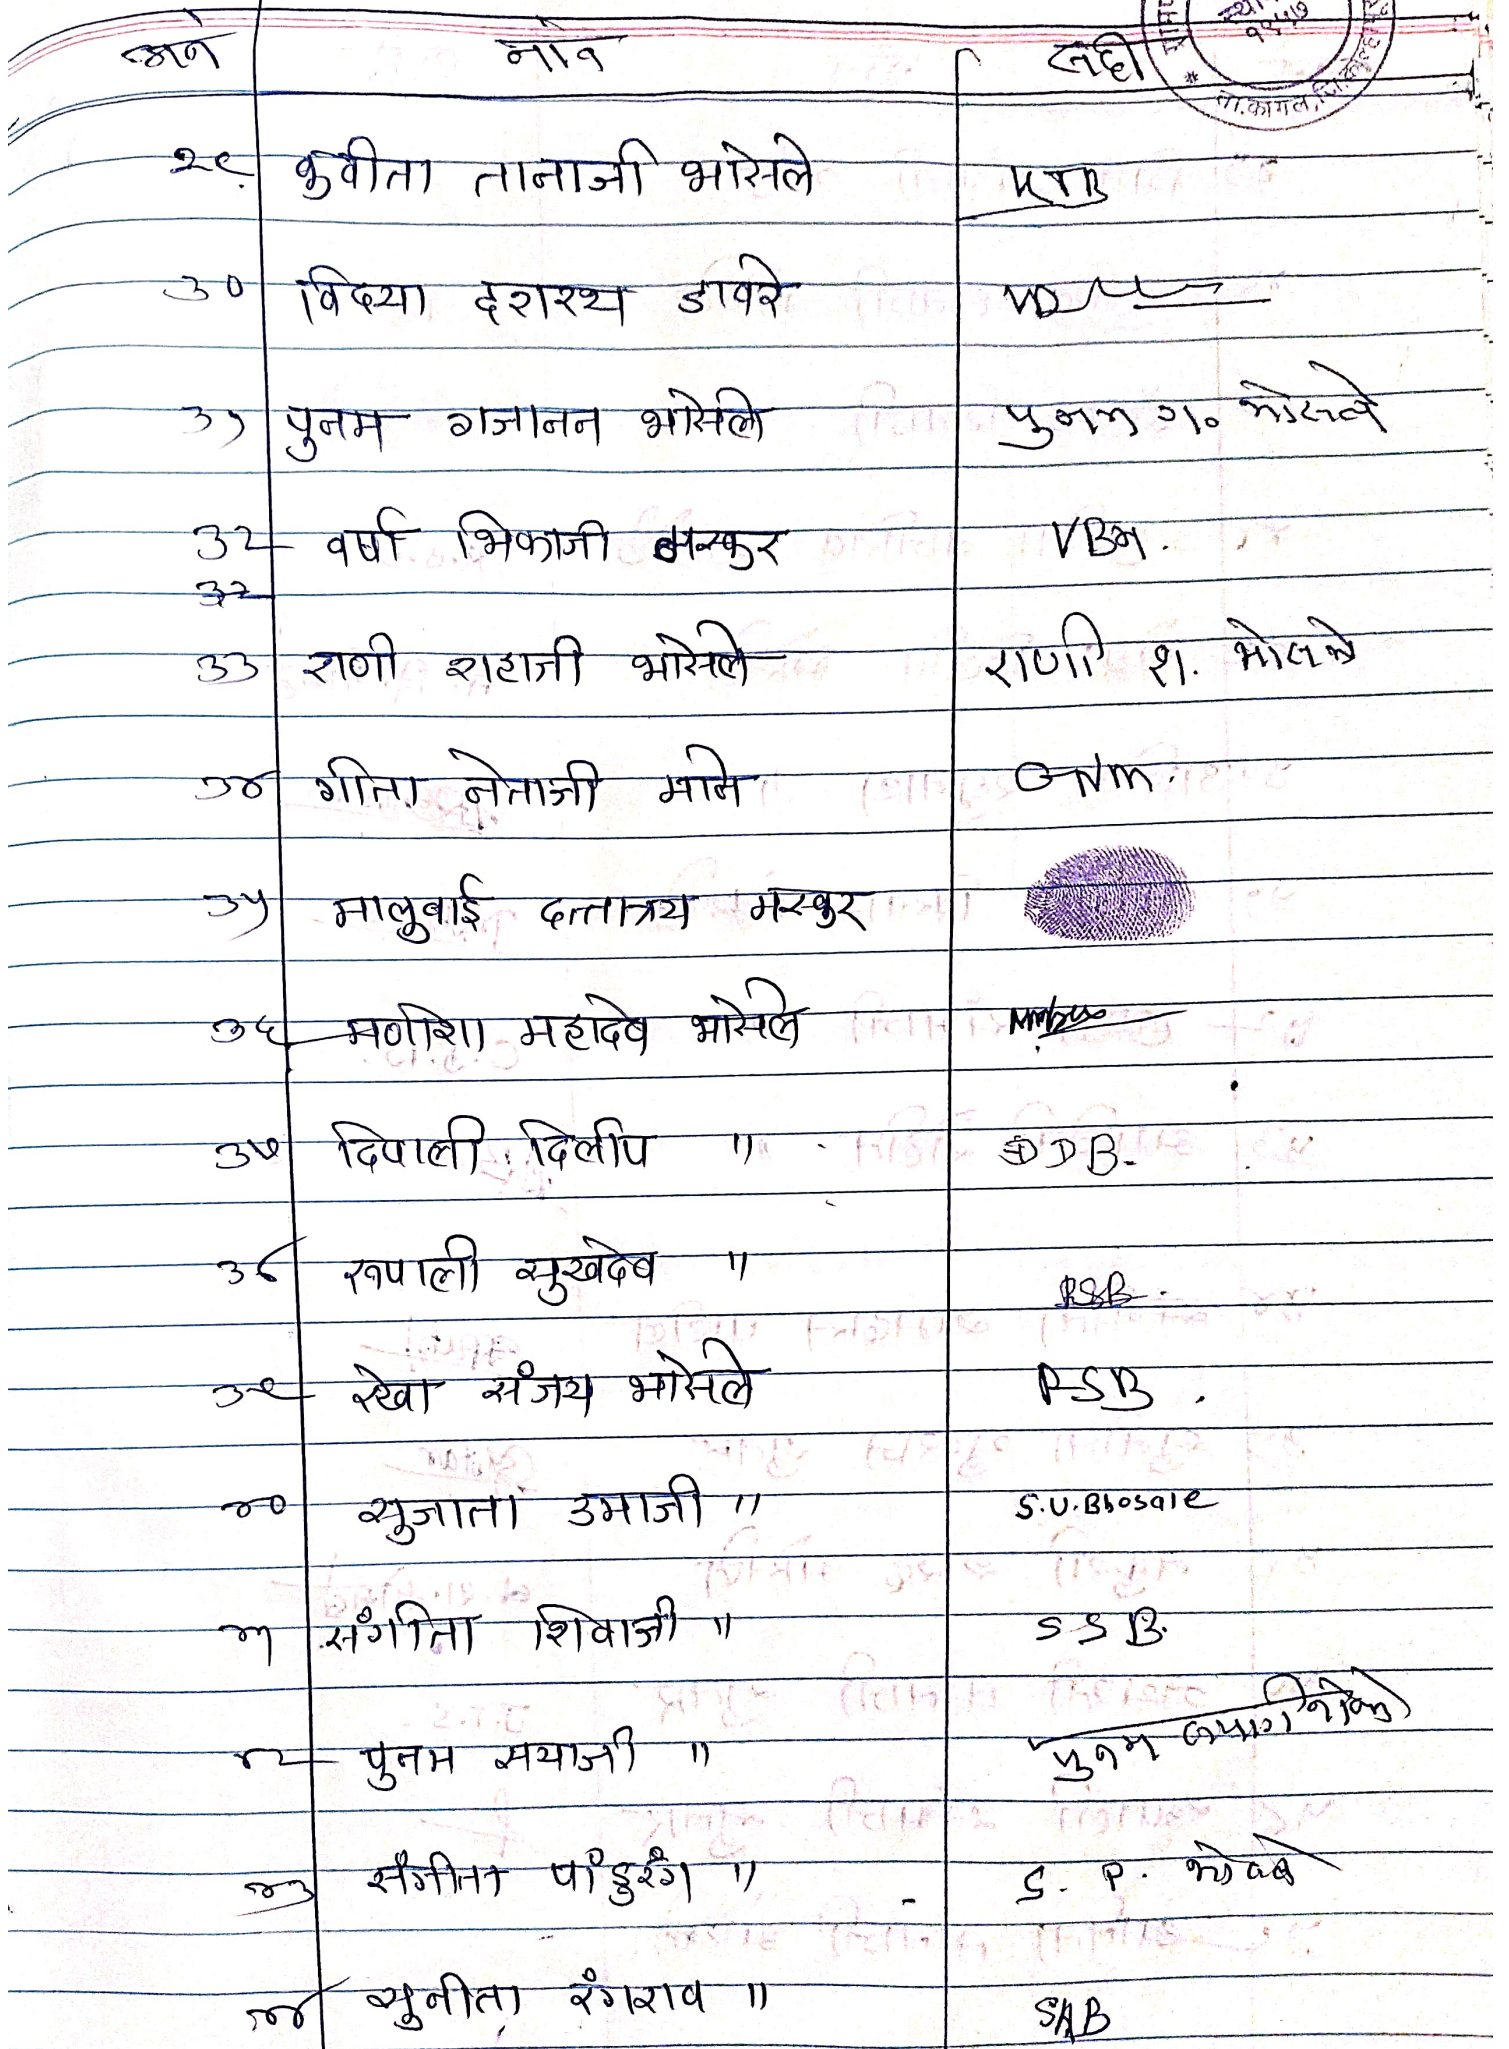 नांव सही
ता.कागल, जि.कोल्हापूर
२९ कवीता तानाजी भोसले KTB
३० विदया दशरथ डावरे
३१ पुनम गजानन भोसले पुनम ग. भोसले
३२ वर्षा भिकाजी मस्कुर VBM.
३२
३३ राणी शहाजी भोसले राणी श. भोसले
३४ गीता नेताजी माने GNM.
३५ मालुबाई दत्तात्रय मस्कुर
३६ मणीशा महादेव भोसले
३७ दिपाली दिलीप " DDB.
३८ रूपाली सुखदेव " RSB.
३९ रेखा संजय भोसले RSB.
४० सुजाता उमाजी " S.U.Bhosale
४१ संगीता शिवाजी " SSB.
४२ पुनम सयाजी " पुनम सयाजी भोसले
४३ संगीता पांडुरंग " S. P. भोसले
४४ सुनीता रंगराव " SRB